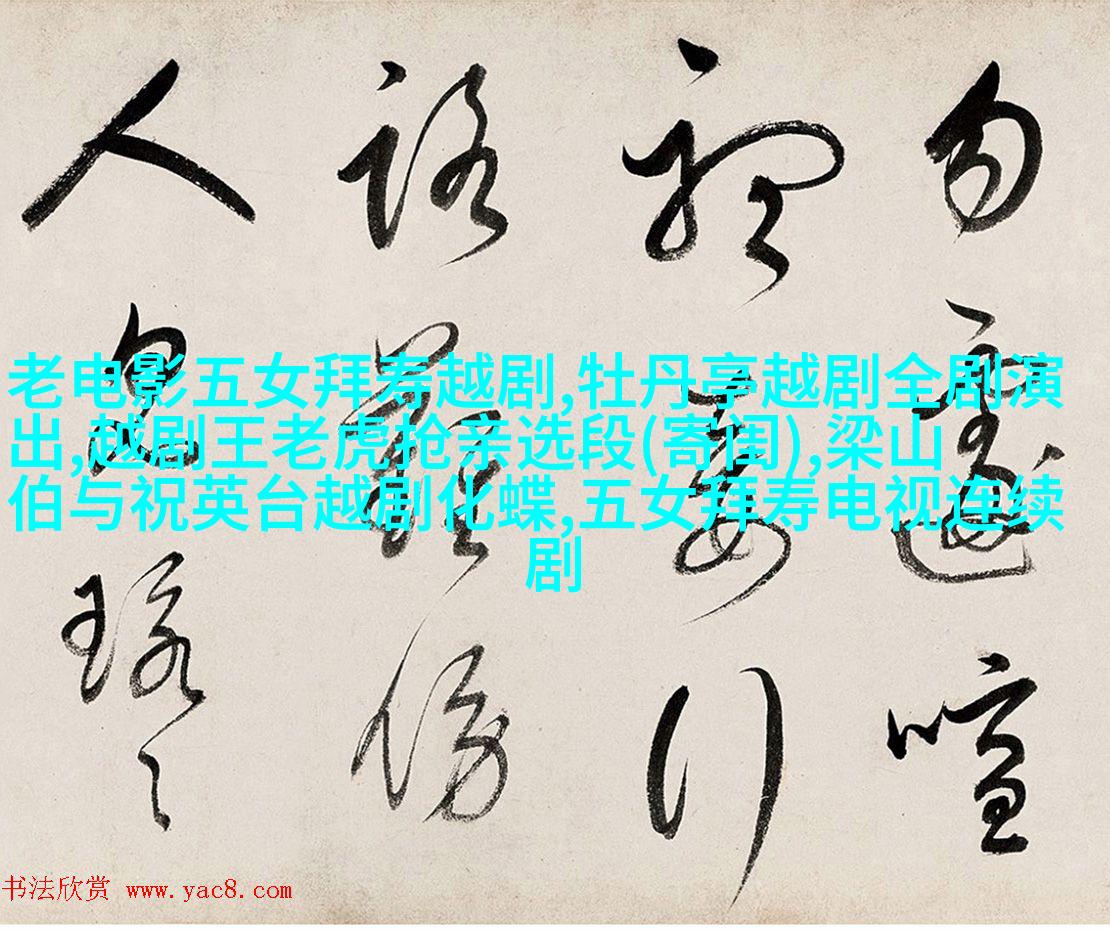 勿喧
行
路難傍
人見
老电影五女拜寿越剧,牡丹亭越剧全剧演
出,越剧王老虎抢亲选段(寄闺),梁山
伯与祝英台越剧化蝶,五女拜寿电视连续
剧
书法欣赏 www.yac8.com